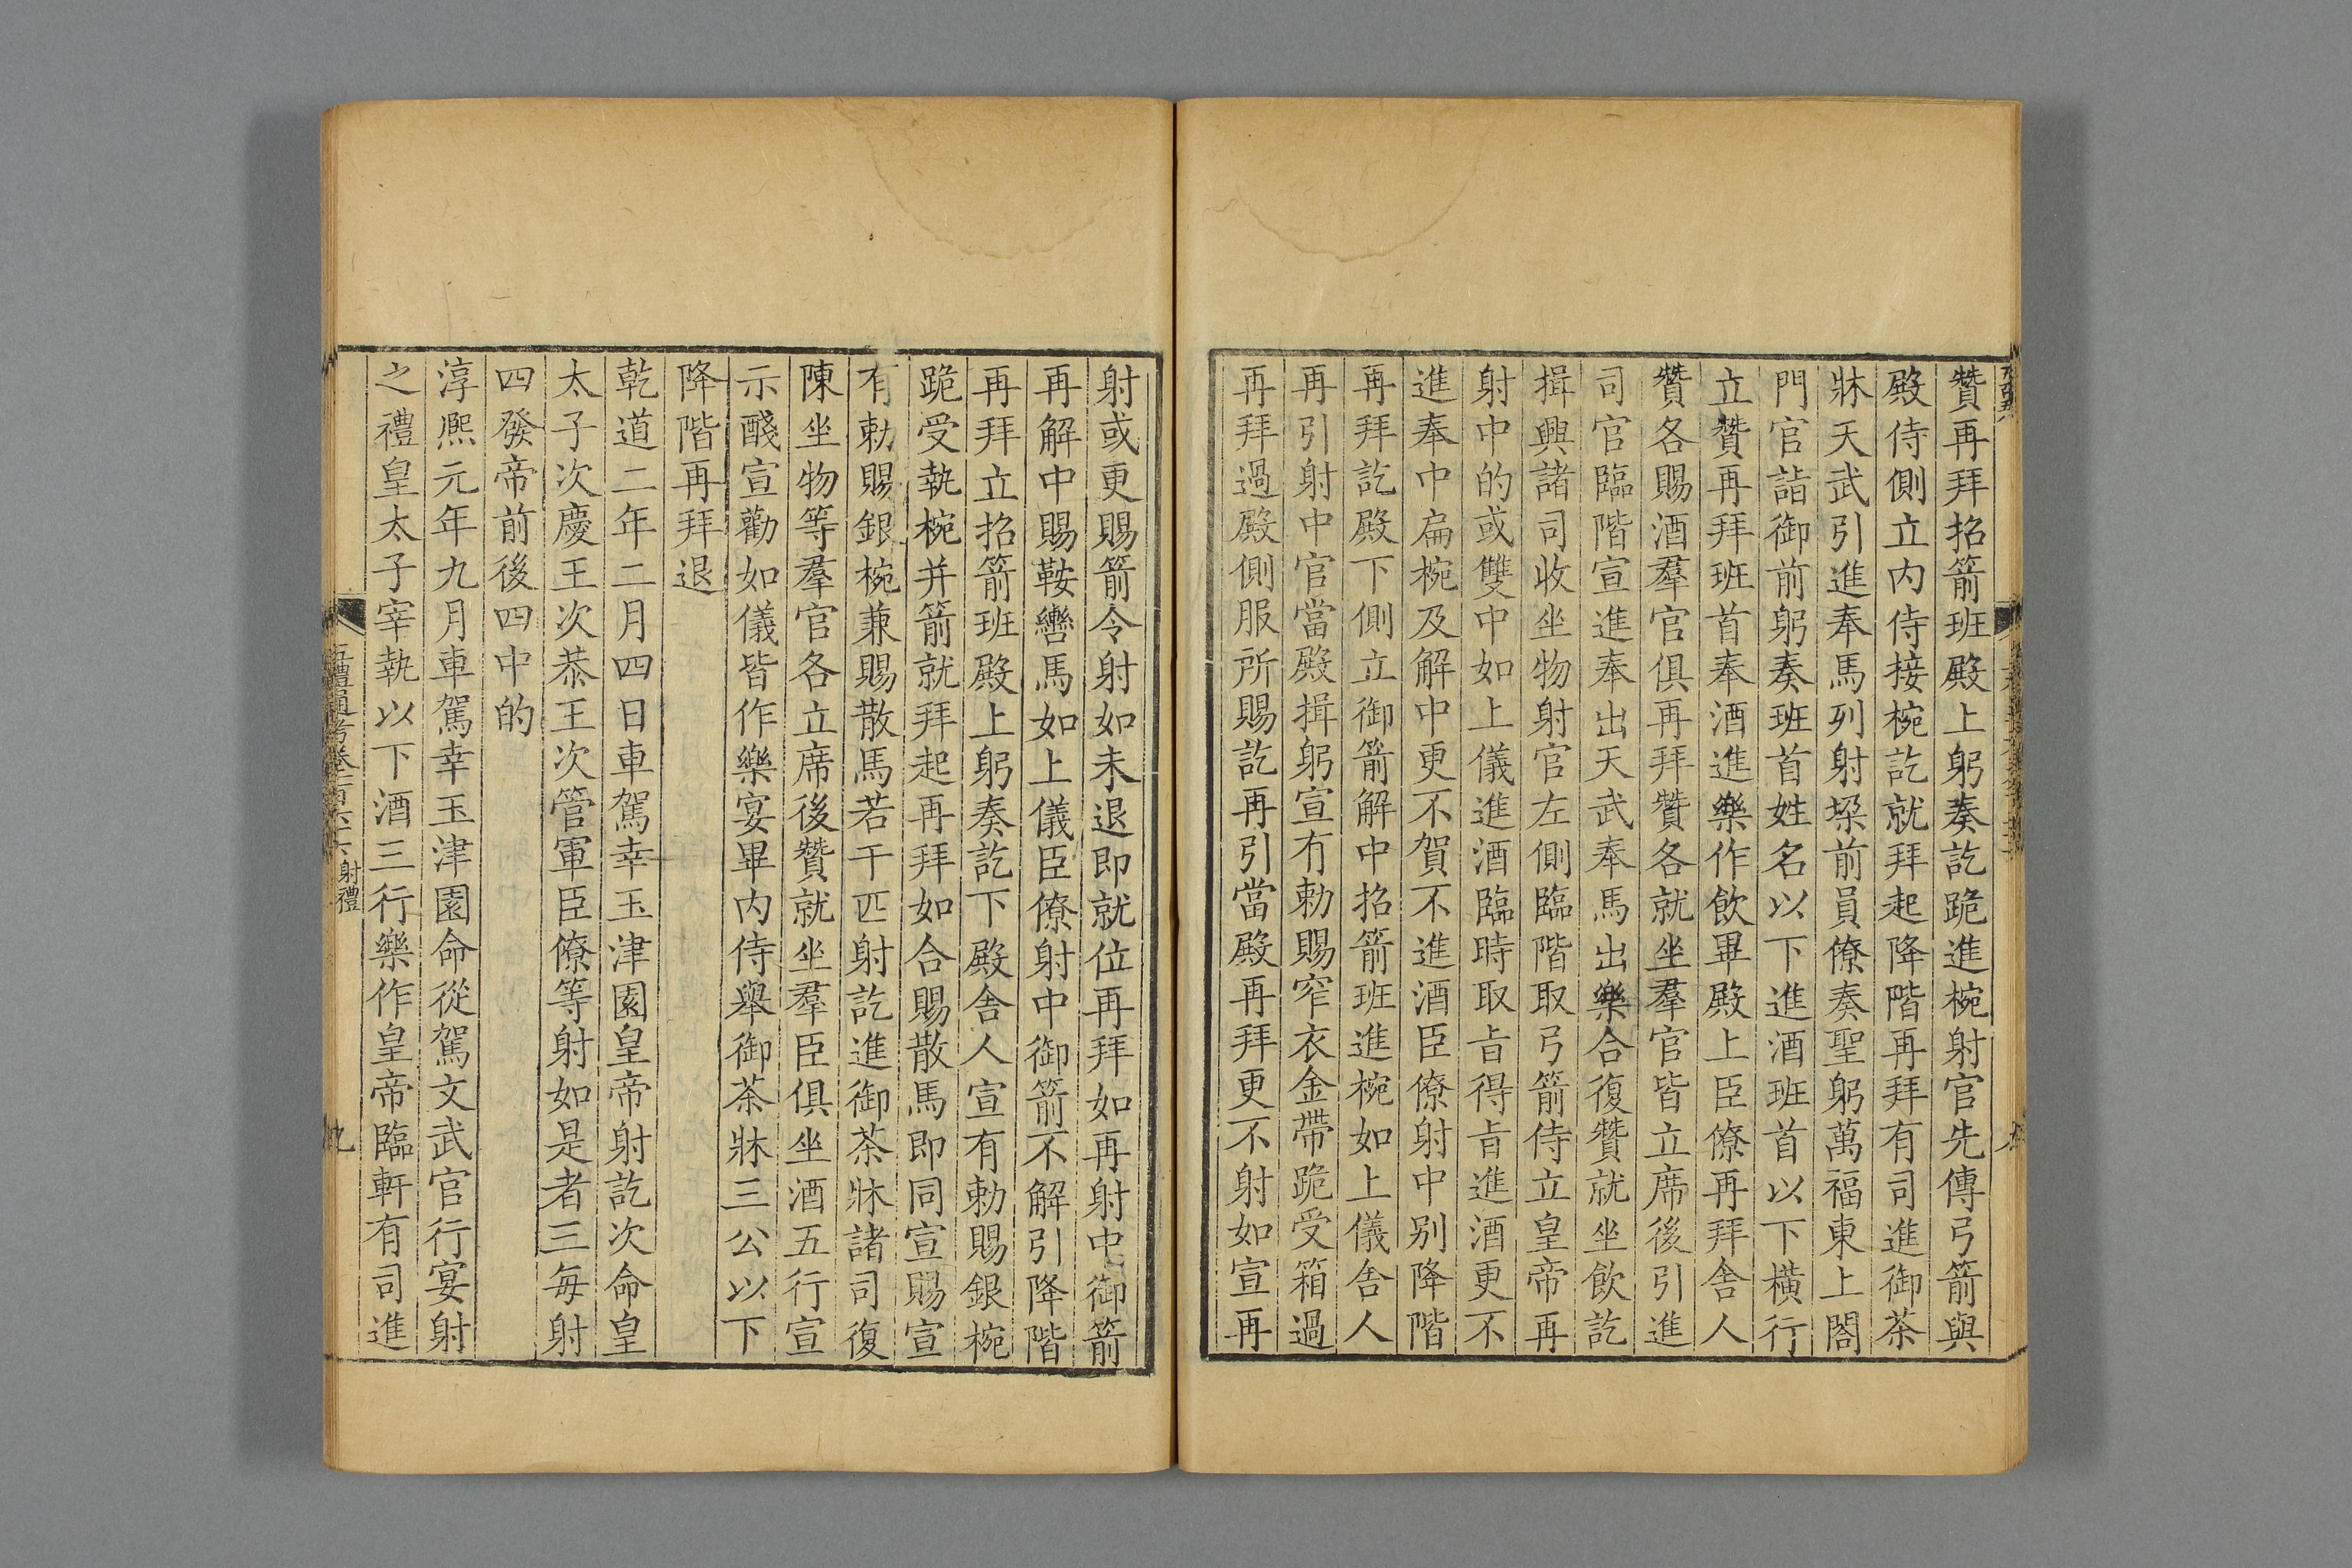 贊再拜招箭班殿上躬奏訖跪進椀射官先傳弓箭與
殿侍側立内侍接椀訖就拜起降階再拜有司進御茶
牀天武引進奉馬列射垜前員僚奏聖躬萬福東上閤
門官詣御前躬奏班首姓名以下進酒班首以下横行
立贊再拜班首奉酒進樂作飲畢殿上臣僚再拜舎人
贊各賜酒羣官俱再拜贊各就坐羣官皆立席後引進
司官臨階宣進奉出天武奉馬出樂合復贊就坐飲訖
揖興諸司收坐物射官左側臨階取弓箭侍立皇帝再
射中的或雙中如上儀進酒臨時取㫖得㫖進酒更不
進奉中扁椀及解中更不賀不進酒臣僚射中别降階
再拜訖殿下側立御箭解中招箭班進椀如上儀舎人
再引射中官當殿揖躬宣有勅賜窄衣金帶跪受箱過
再拜過殿側服所賜訖再引當殿再拜更不射如宣再
射或更賜箭令射如未退即就位再拜如再射中御箭
再解中賜鞍轡馬如上儀臣僚射中御箭不解引降階
再拜立招箭班殿上躬奏訖下殿舎人宣有勅賜銀椀
跪受執椀并箭就拜起再拜如合賜散馬即同宣賜宣
有勅賜銀椀兼賜散馬若干匹射訖進御茶牀諸司復
陳坐物等羣官各立席後贊就坐羣臣俱坐酒五行宣
示醆宣勸如儀皆作樂宴畢内侍舉御茶牀三公以下
降階再拜退
乾道二年二月四日車駕幸玉津園皇帝射訖次命皇
太子次慶王次恭王次管軍臣僚等射如是者三每射
四發帝前後四中的
淳熙元年九月車駕幸玉津園命從駕文武官行宴射
之禮皇太子宰執以下酒三行樂作皇帝臨軒有司進
五禮通考卷一百六十六 射禮
九